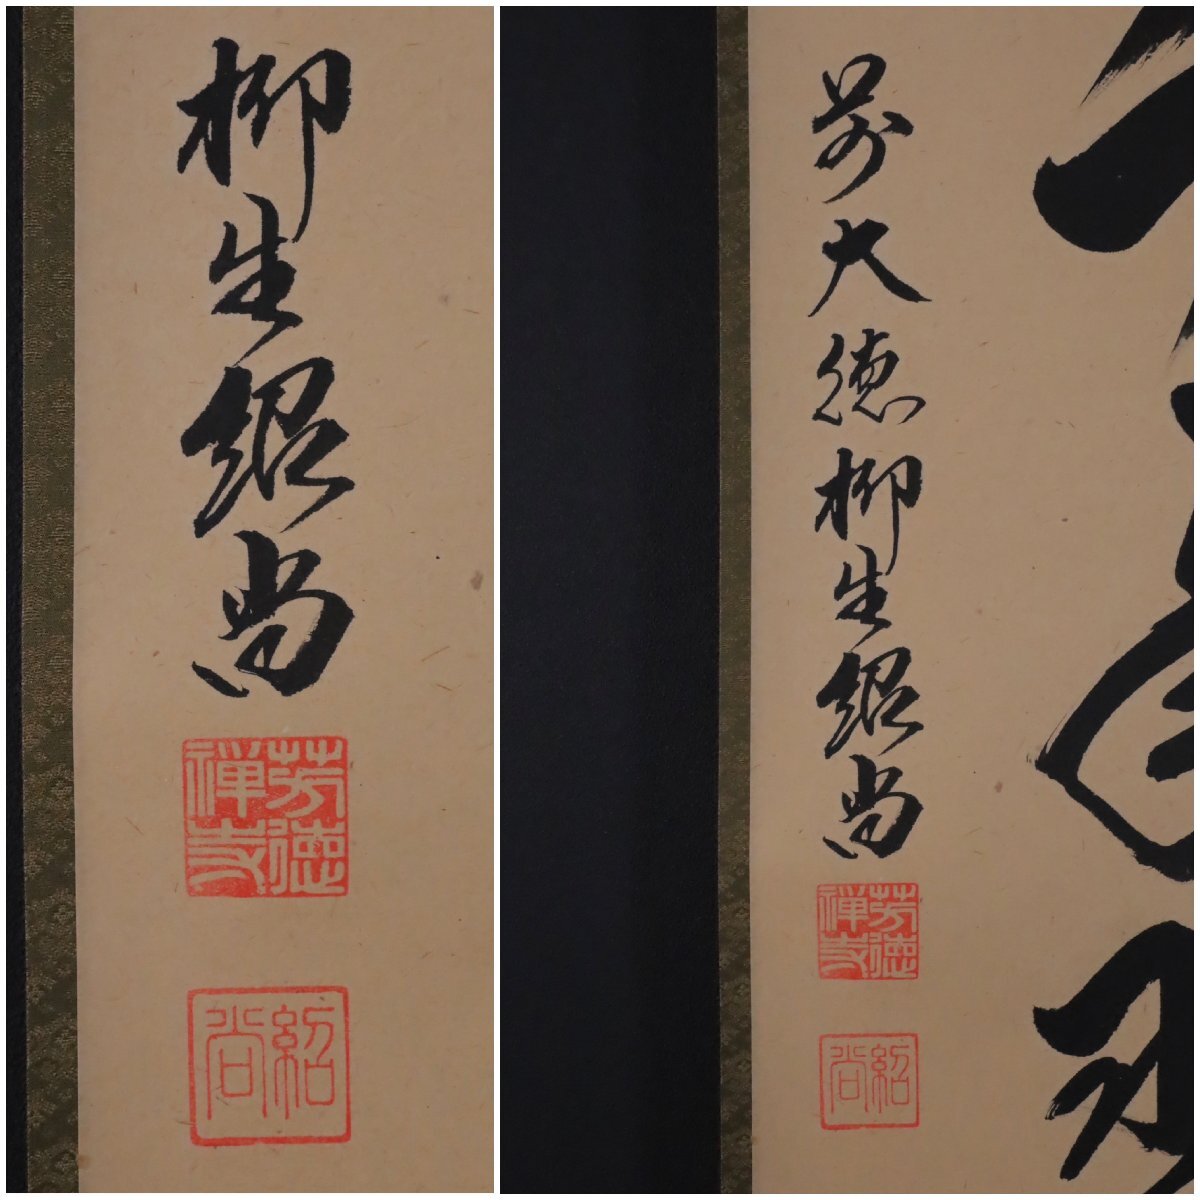 柳生紹尚
芳徳
禅寺
紹尚
前大徳柳生紹尚
芳徳
禅寺
紹尚